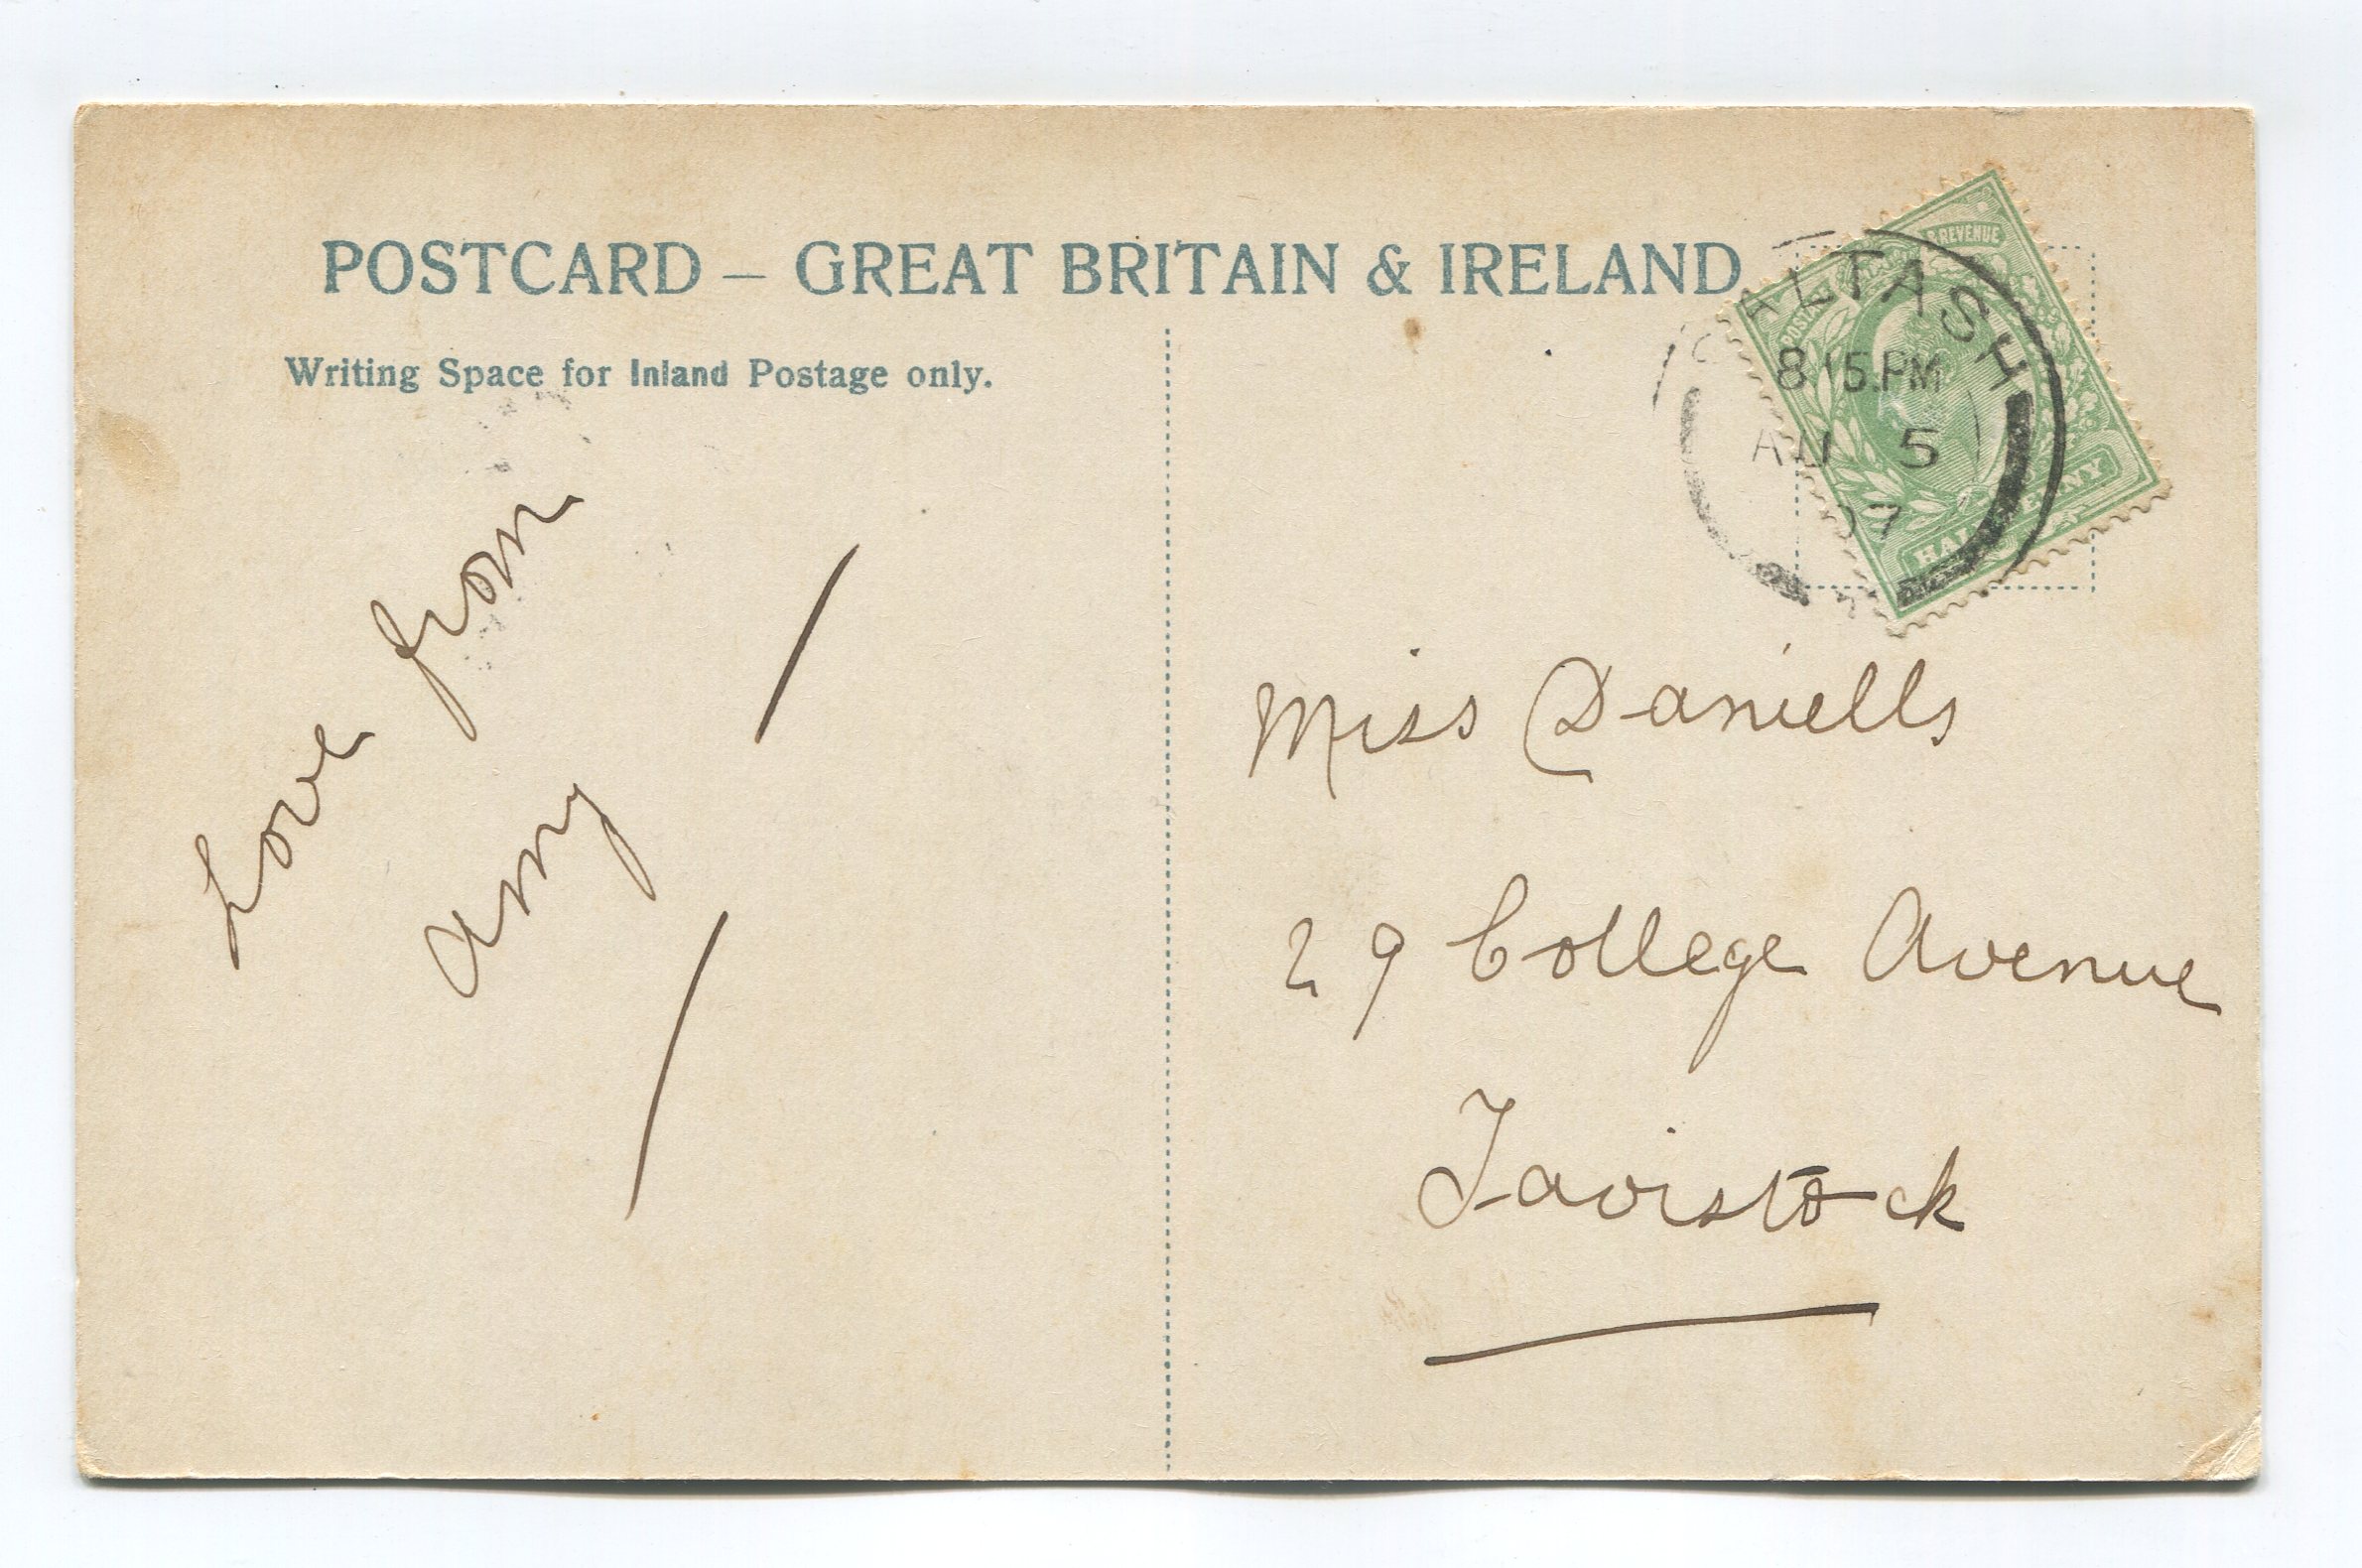 POSTCARD – GREAT BRITAIN & IRELAND
Writing Space for Inland Postage only.
Love from
Amy
POSTAGE & REVENUE
HALFPENNY
SALTASH
8 15 PM
AU 5
07
Miss Daniells
29 College Avenue
Tavistock